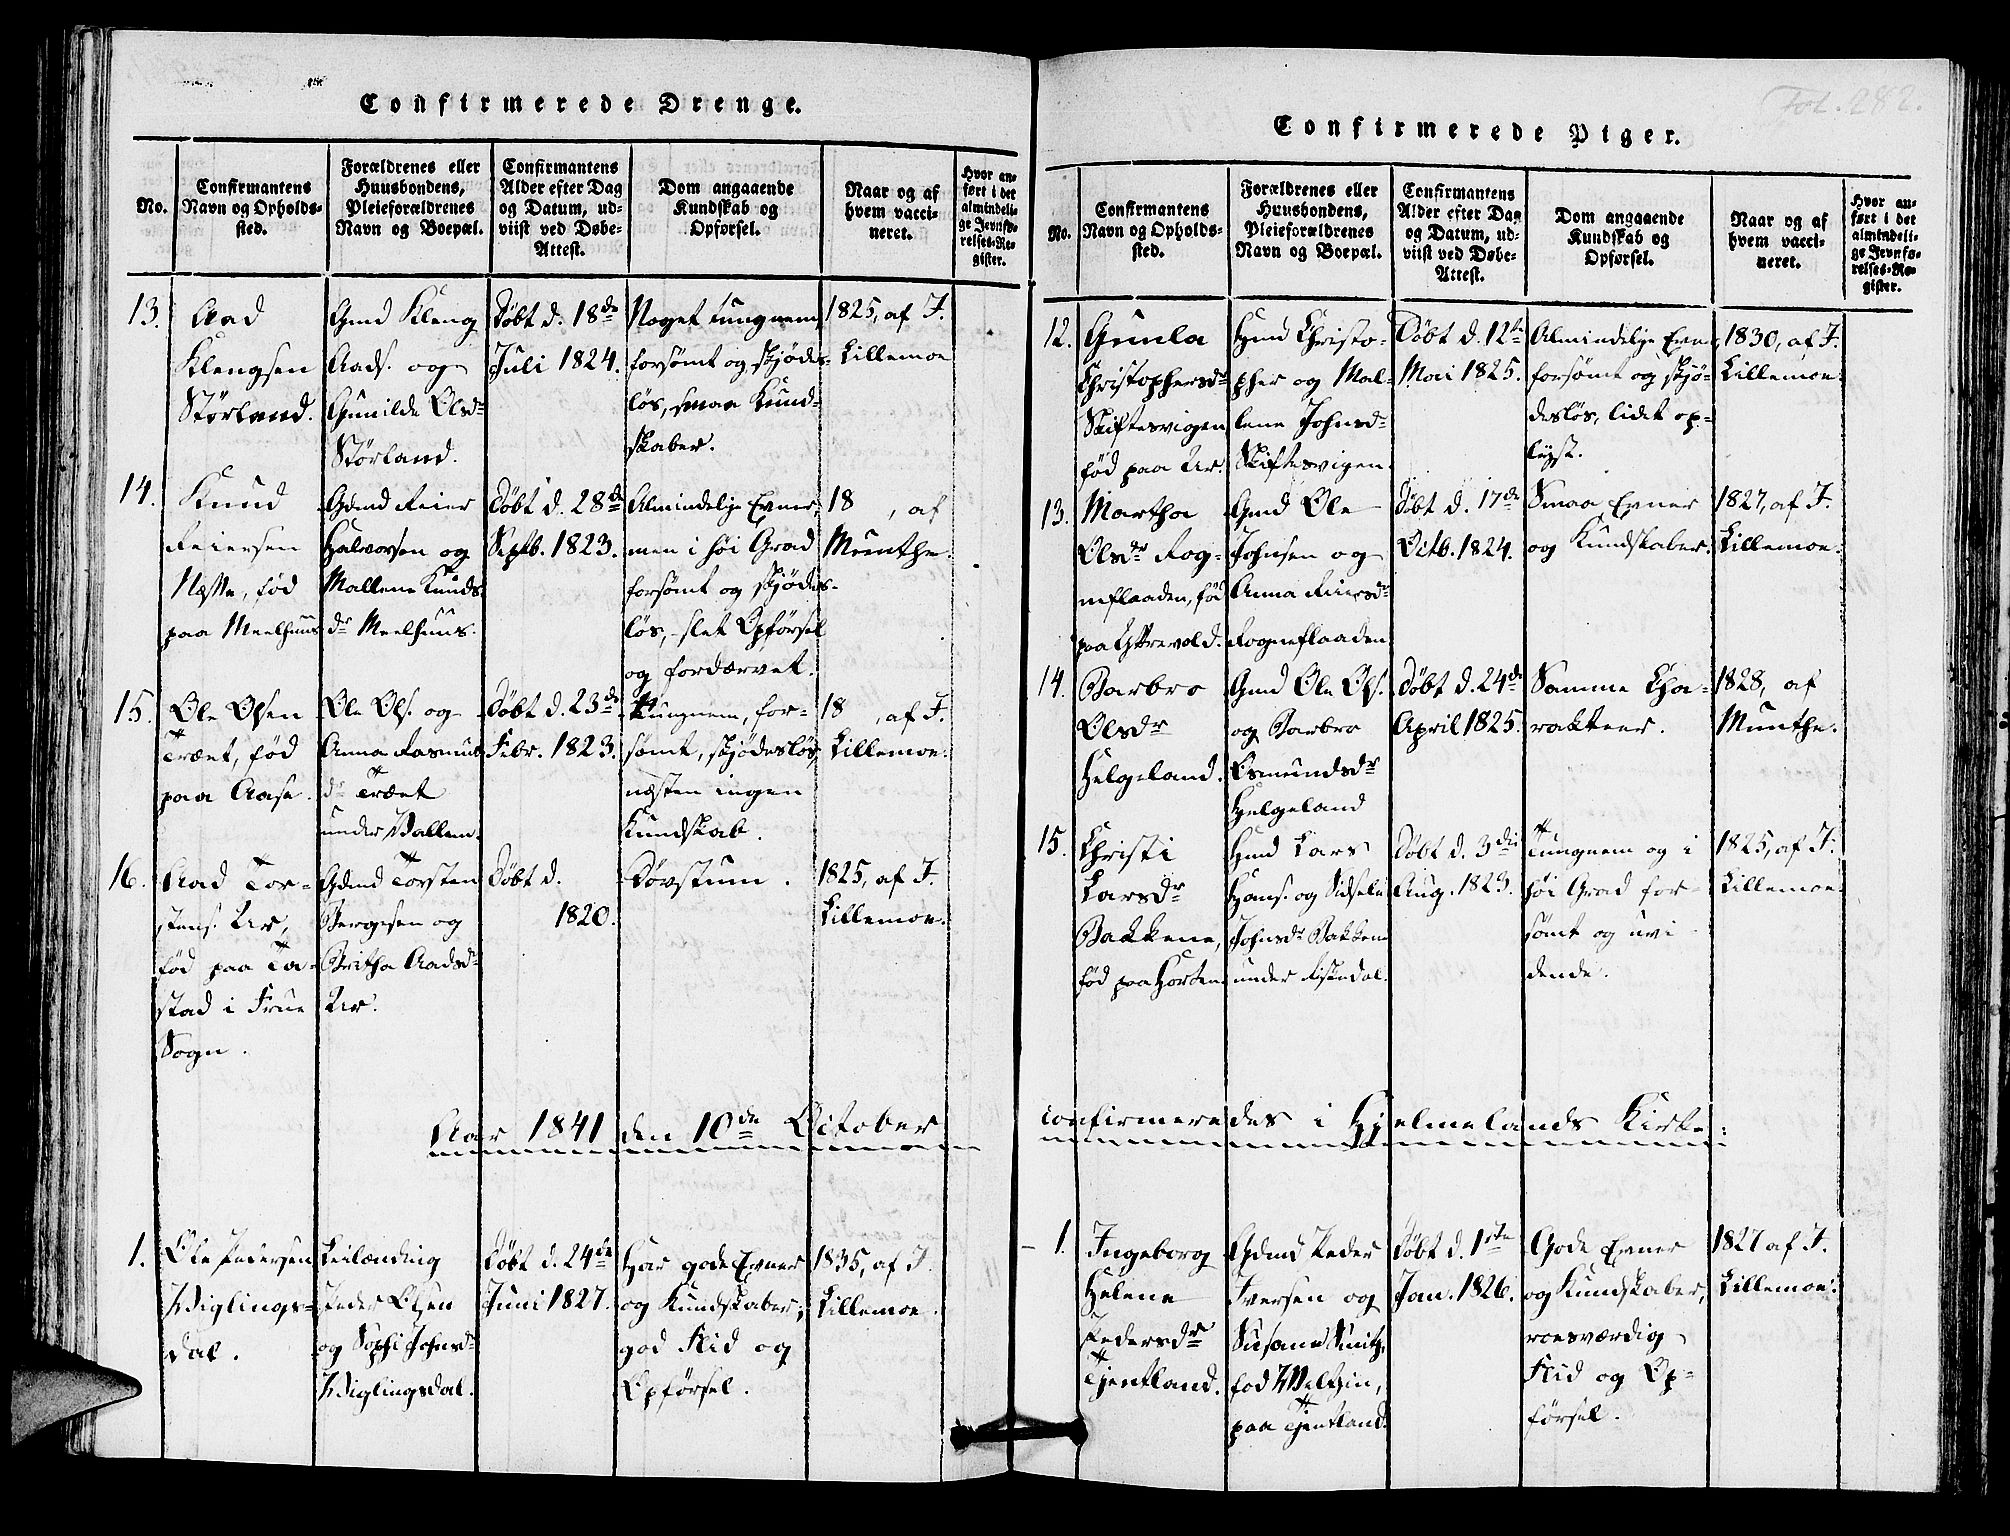 Fol. 282.
Confirmerede Drenge.
No.
Confirmantens
Navn og Opholds-
sted.
Forældrenes eller
Huusbondens,
Pleieforældrenes
Navn og Boepæl.
Confirmantens
Alder efter Dag
og Datum, ud-
viist ved Døbe-
Attest.
Dom angaaende
Kundskab og
Opførsel.
Naar og af
hvem vacci-
neret.
Hvor an-
ført i det
almindeli-
ge Jevnfø-
relses-Re-
gister.
13.
Aad
Klengsen
Størland.
Gmd Kleng
Aads. og
Gunilde Olsdr
Størland.
Døbt d. 18de
Juli 1824.
Noget tungnem,
forsömt og skjödes-
lös, smaa Kund-
skaber.
1825, af J.
Lillemoe
14.
Knud
Reiersen
Næsse, fød
paa Meelhuus
Gdmd Reier
Halvorsen og
Mallene Knuds-
dr Meelhuus.
Döbt d. 28de
Septb. 1823.
Almindelige Evner,
men i höi Grad
forsömt og skjödes-
lös, slet Opförsel
og fordærvet.
18 , af
Munthe.
15.
Ole Olsen
Træet, fød
paa Aase.
Ole Ols. og
Anna Rasmus-
dr Træet
under Vallem.
Döbt d. 23de
Febr. 1823.
Tungnem, for-
sömt, skjödeslös,
næsten ingen
Kundskab.
18 , af J.
Lillemoe.
16.
Aad Tor-
stens. Ur,
fød paa Ta-
stad i Frue
Sogn.
Gdmd Torsten
Bergesen og
Britha Aadsdr
Ur.
Döbt d.
1820.
Dövstum.
1825, af J.
Lillemoe.
Aar 1841 den 10de October
1.
Ole Pedersen
Viglings-
dal.
Leilænding
Peder Olsen
og Sophi Johnsdr
Viglingsdal.
Döbt d. 24de
Juni 1827.
Har gode Evner
og Kundskaber,
god Flid og
Opförsel.
1835, af J.
Lillemoe.
Confirmerede Piger.
No.
Confirmantens
Navn og Opholds-
sted.
Forældrenes eller
Huusbondens,
Pleieforældrenes
Navn og Boepæl.
Confirmantens
Alder efter Dag
og Datum, ud-
viist ved Døbe-
Attest.
Dom angaaende
Kundskab og
Opførsel.
Naar og af
hvem vacci-
neret.
Hvor an-
ført i det
almindeli-
ge Jevnfø-
relses-Re-
gister.
12.
Gunla
Christophersdr
Skiftesvigen
fød paa Ur.
Hmd Christo-
pher og Mal-
lene Johnsdr
Skiftesvigen.
Döbt d. 12te
Mai 1825.
Almindelige Evner,
forsömt og skjö-
deslös, lidet op-
lyst.
1830, af J.
Lillemoe.
13.
Martha
Olsdr Rog-
neflaaden, fød
paa Yttrevold.
Gmd Ole
Johnsen og
Anna Reiersdr
Rogneflaaden.
Döbt d. 17de
Octb. 1824.
Smaa Evner
og Kundskaber.
1827, af J.
Lillemoe.
14.
Barbro
Olsdr
Helgeland.
Gmd Ole Ols.
og Barbro
Osmundsdr
Helgeland
Döbt d. 24de
April 1825.
Samme Cha-
rakteer.
1828, af
Munthe.
15.
Christi
Larsdr
Bakkene,
fød paa Horten
Hmd Lars
Hans. og Sidsele
Johnsdr Bakkene
under Riskedal.
Döbt d. 3die
Aug. 1823.
Tungnem og i
höi Grad for-
sömt og uvi-
dende.
1825, af J.
Lillemoe.
confirmeredes i Hjelmelands Kirke:
1.
Ingeborg
Helene
Pedersdr
Tjentland.
Gdmd Peder
Iversen og
Susanne
fød Weltzin,
paa Tjentland.
Döbt d. 1ste
Jan. 1826.
Gode Evner
og Kundskaber,
roesværdig
Flid og Op-
försel.
1827 af J.
Lillemoe.